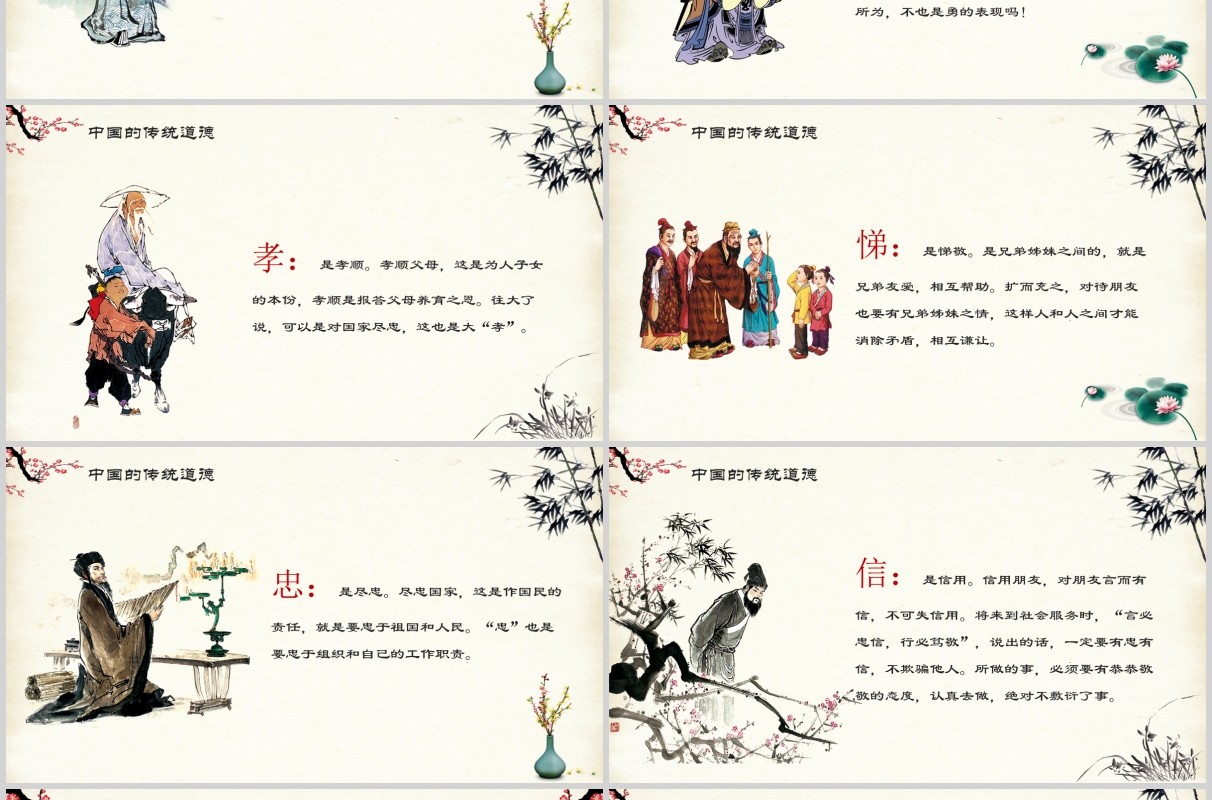 所为，不也是勇的表现吗！
中国的传统道德
孝： 是孝顺。孝顺父母，这是为人子女
的本份，孝顺是报答父母养育之恩。往大了
说，可以是对国家尽忠，这也是大“孝”。
中国的传统道德
悌： 是悌敬。是兄弟姊妹之间的，就是
兄弟友爱，相互帮助。扩而充之，对待朋友
也要有兄弟姊妹之情，这样人和人之间才能
消除矛盾，相互谦让。
中国的传统道德
忠： 是尽忠。尽忠国家，这是作国民的
责任，就是要忠于祖国和人民。“忠”也是
要忠于组织和自己的工作职责。
中国的传统道德
信： 是信用。信用朋友，对朋友言而有
信，不可失信用。将来到社会服务时，“言必
忠信，行必笃敬”，说出的话，一定要有忠有
信，不欺骗他人。所做的事，必须要有恭恭敬
敬的态度，认真去做，绝对不敷衍了事。